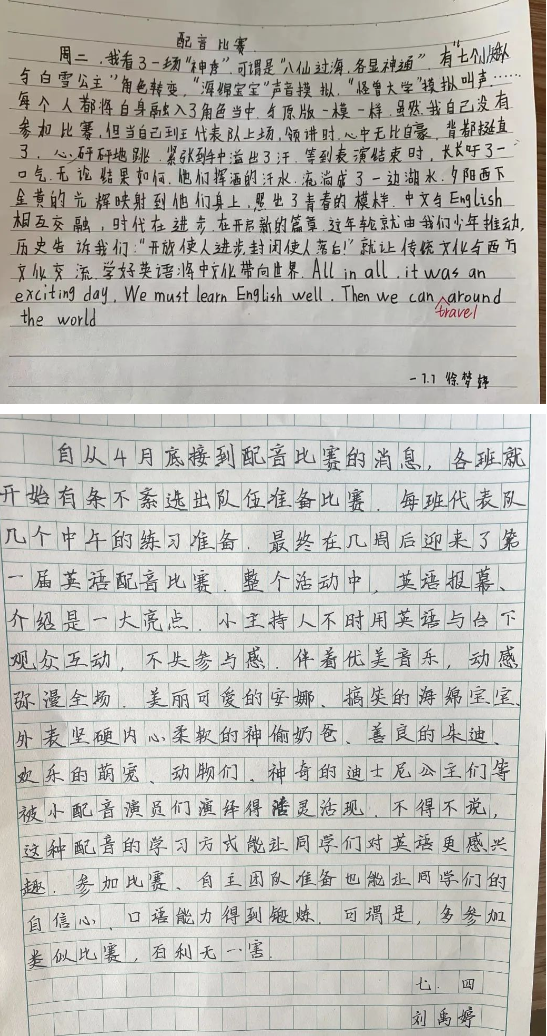 配音比赛
周二,我看了一场"神序",可谓是"八仙过海,各显神通",有"七个小矮人
与白雪公主"角色转变,"海绵宝宝"声音模拟,"怪兽大学"模拟叫声……
每个人都将自身融入了角色当中,与原版一模一样.虽然我自己没有
参加比赛,但当自己班代表队上场,领讲时,心中无比自豪,背都挺直
了,心砰砰地跳,紧张到手中溢出了汗.等到表演结束时,长长吁了一
口气.无论结果如何,他们挥洒的汗水,流淌成了一边湖水,夕阳西下
金黄的光辉映射到他们身上,照出了青春的模样.中文与English
相互交融,时代在进步.在开启新的篇章.这年轮就由我们少年推动,
历史告诉我们:"开放使人进步,封闭使人落后!"就让传统文化与西方
文化交流,学好英语,将中文化带向世界.All in all, it was an
exciting day. We must learn English well. Then we can around
travel
the world
-7.1 徐梦婷
自从4月底接到配音比赛的消息,各班就
开始有条不紊选出队伍准备比赛.每班代表队
几个中午的练习准备.最终在几周后迎来了第
一届英语配音比赛.整个活动中,英语报幕、
介绍是一大亮点.小主持人不时用英语与台下
观众互动,不失参与感.伴着优美音乐,动感
弥漫全场.美丽可爱的安娜、搞笑的海绵宝宝、
外表坚硬内心柔软的神偷奶爸、善良的朱迪、
欢乐的萌宠、动物们、神奇的迪士尼公主们等
被小配音演员们演绎得活灵活现.不得不说,
这种配音的学习方式能让同学们对英语更感兴
趣.参加比赛、自主团队准备也能让同学们的
自信心、口语能力得到锻炼.可谓是,多参加
类似比赛,百利无一害.
七.四
刘禹婷